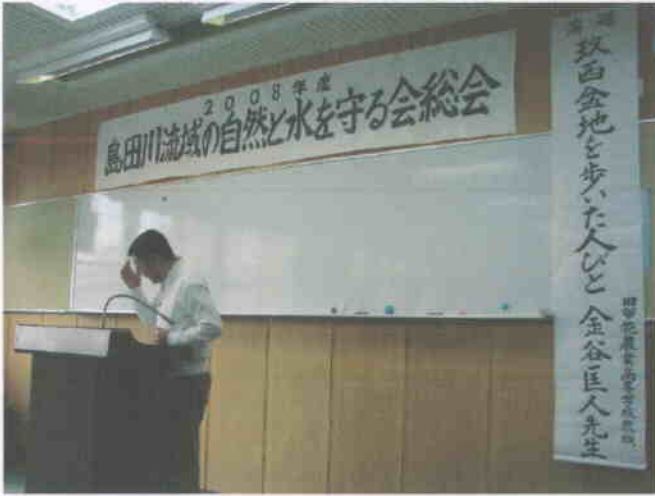 2008年度
島田川流域の自然と水を守る会総会
玖西盆地を歩いた人びと 金谷匡人先生